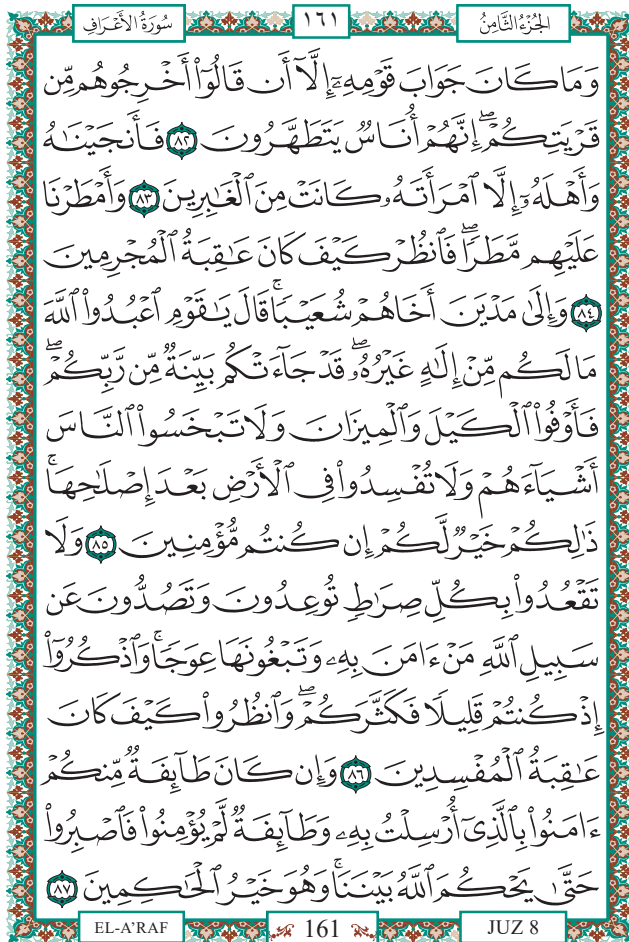 الجُزْءُ الثَّامِنُ ١٦١ سُورَةُ الأَعْرَافِ
وَمَا كَانَ جَوَابَ قَوْمِهِۦٓ إِلَّآ أَن قَالُوٓاْ أَخْرِجُوهُم مِّن
قَرْيَتِكُمْۖ إِنَّهُمْ أُنَاسٌ يَتَطَهَّرُونَ ٨٢ فَأَنجَيْنَٰهُ
وَأَهْلَهُۥٓ إِلَّا ٱمْرَأَتَهُۥ كَانَتْ مِنَ ٱلْغَٰبِرِينَ ٨٣ وَأَمْطَرْنَا
عَلَيْهِم مَّطَرًاۖ فَٱنظُرْ كَيْفَ كَانَ عَٰقِبَةُ ٱلْمُجْرِمِينَ
٨٤ وَإِلَىٰ مَدْيَنَ أَخَاهُمْ شُعَيْبًاۚ قَالَ يَٰقَوْمِ ٱعْبُدُواْ ٱللَّهَ
مَا لَكُم مِّنْ إِلَٰهٍ غَيْرُهُۥۖ قَدْ جَآءَتْكُم بَيِّنَةٌ مِّن رَّبِّكُمْۖ
فَأَوْفُواْ ٱلْكَيْلَ وَٱلْمِيزَانَ وَلَا تَبْخَسُواْ ٱلنَّاسَ
أَشْيَآءَهُمْ وَلَا تُفْسِدُواْ فِى ٱلْأَرْضِ بَعْدَ إِصْلَٰحِهَاۚ
ذَٰلِكُمْ خَيْرٌ لَّكُمْ إِن كُنتُم مُّؤْمِنِينَ ٨٥ وَلَا
تَقْعُدُواْ بِكُلِّ صِرَٰطٍ تُوعِدُونَ وَتَصُدُّونَ عَن
سَبِيلِ ٱللَّهِ مَنْ ءَامَنَ بِهِۦ وَتَبْغُونَهَا عِوَجًاۚ وَٱذْكُرُوٓاْ
إِذْ كُنتُمْ قَلِيلًا فَكَثَّرَكُمْۖ وَٱنظُرُواْ كَيْفَ كَانَ
عَٰقِبَةُ ٱلْمُفْسِدِينَ ٨٦ وَإِن كَانَ طَآئِفَةٌ مِّنكُمْ
ءَامَنُواْ بِٱلَّذِىٓ أُرْسِلْتُ بِهِۦ وَطَآئِفَةٌ لَّمْ يُؤْمِنُواْ فَٱصْبِرُواْ
حَتَّىٰ يَحْكُمَ ٱللَّهُ بَيْنَنَاۚ وَهُوَ خَيْرُ ٱلْحَٰكِمِينَ ٨٧
EL-A'RAF 161 JUZ 8